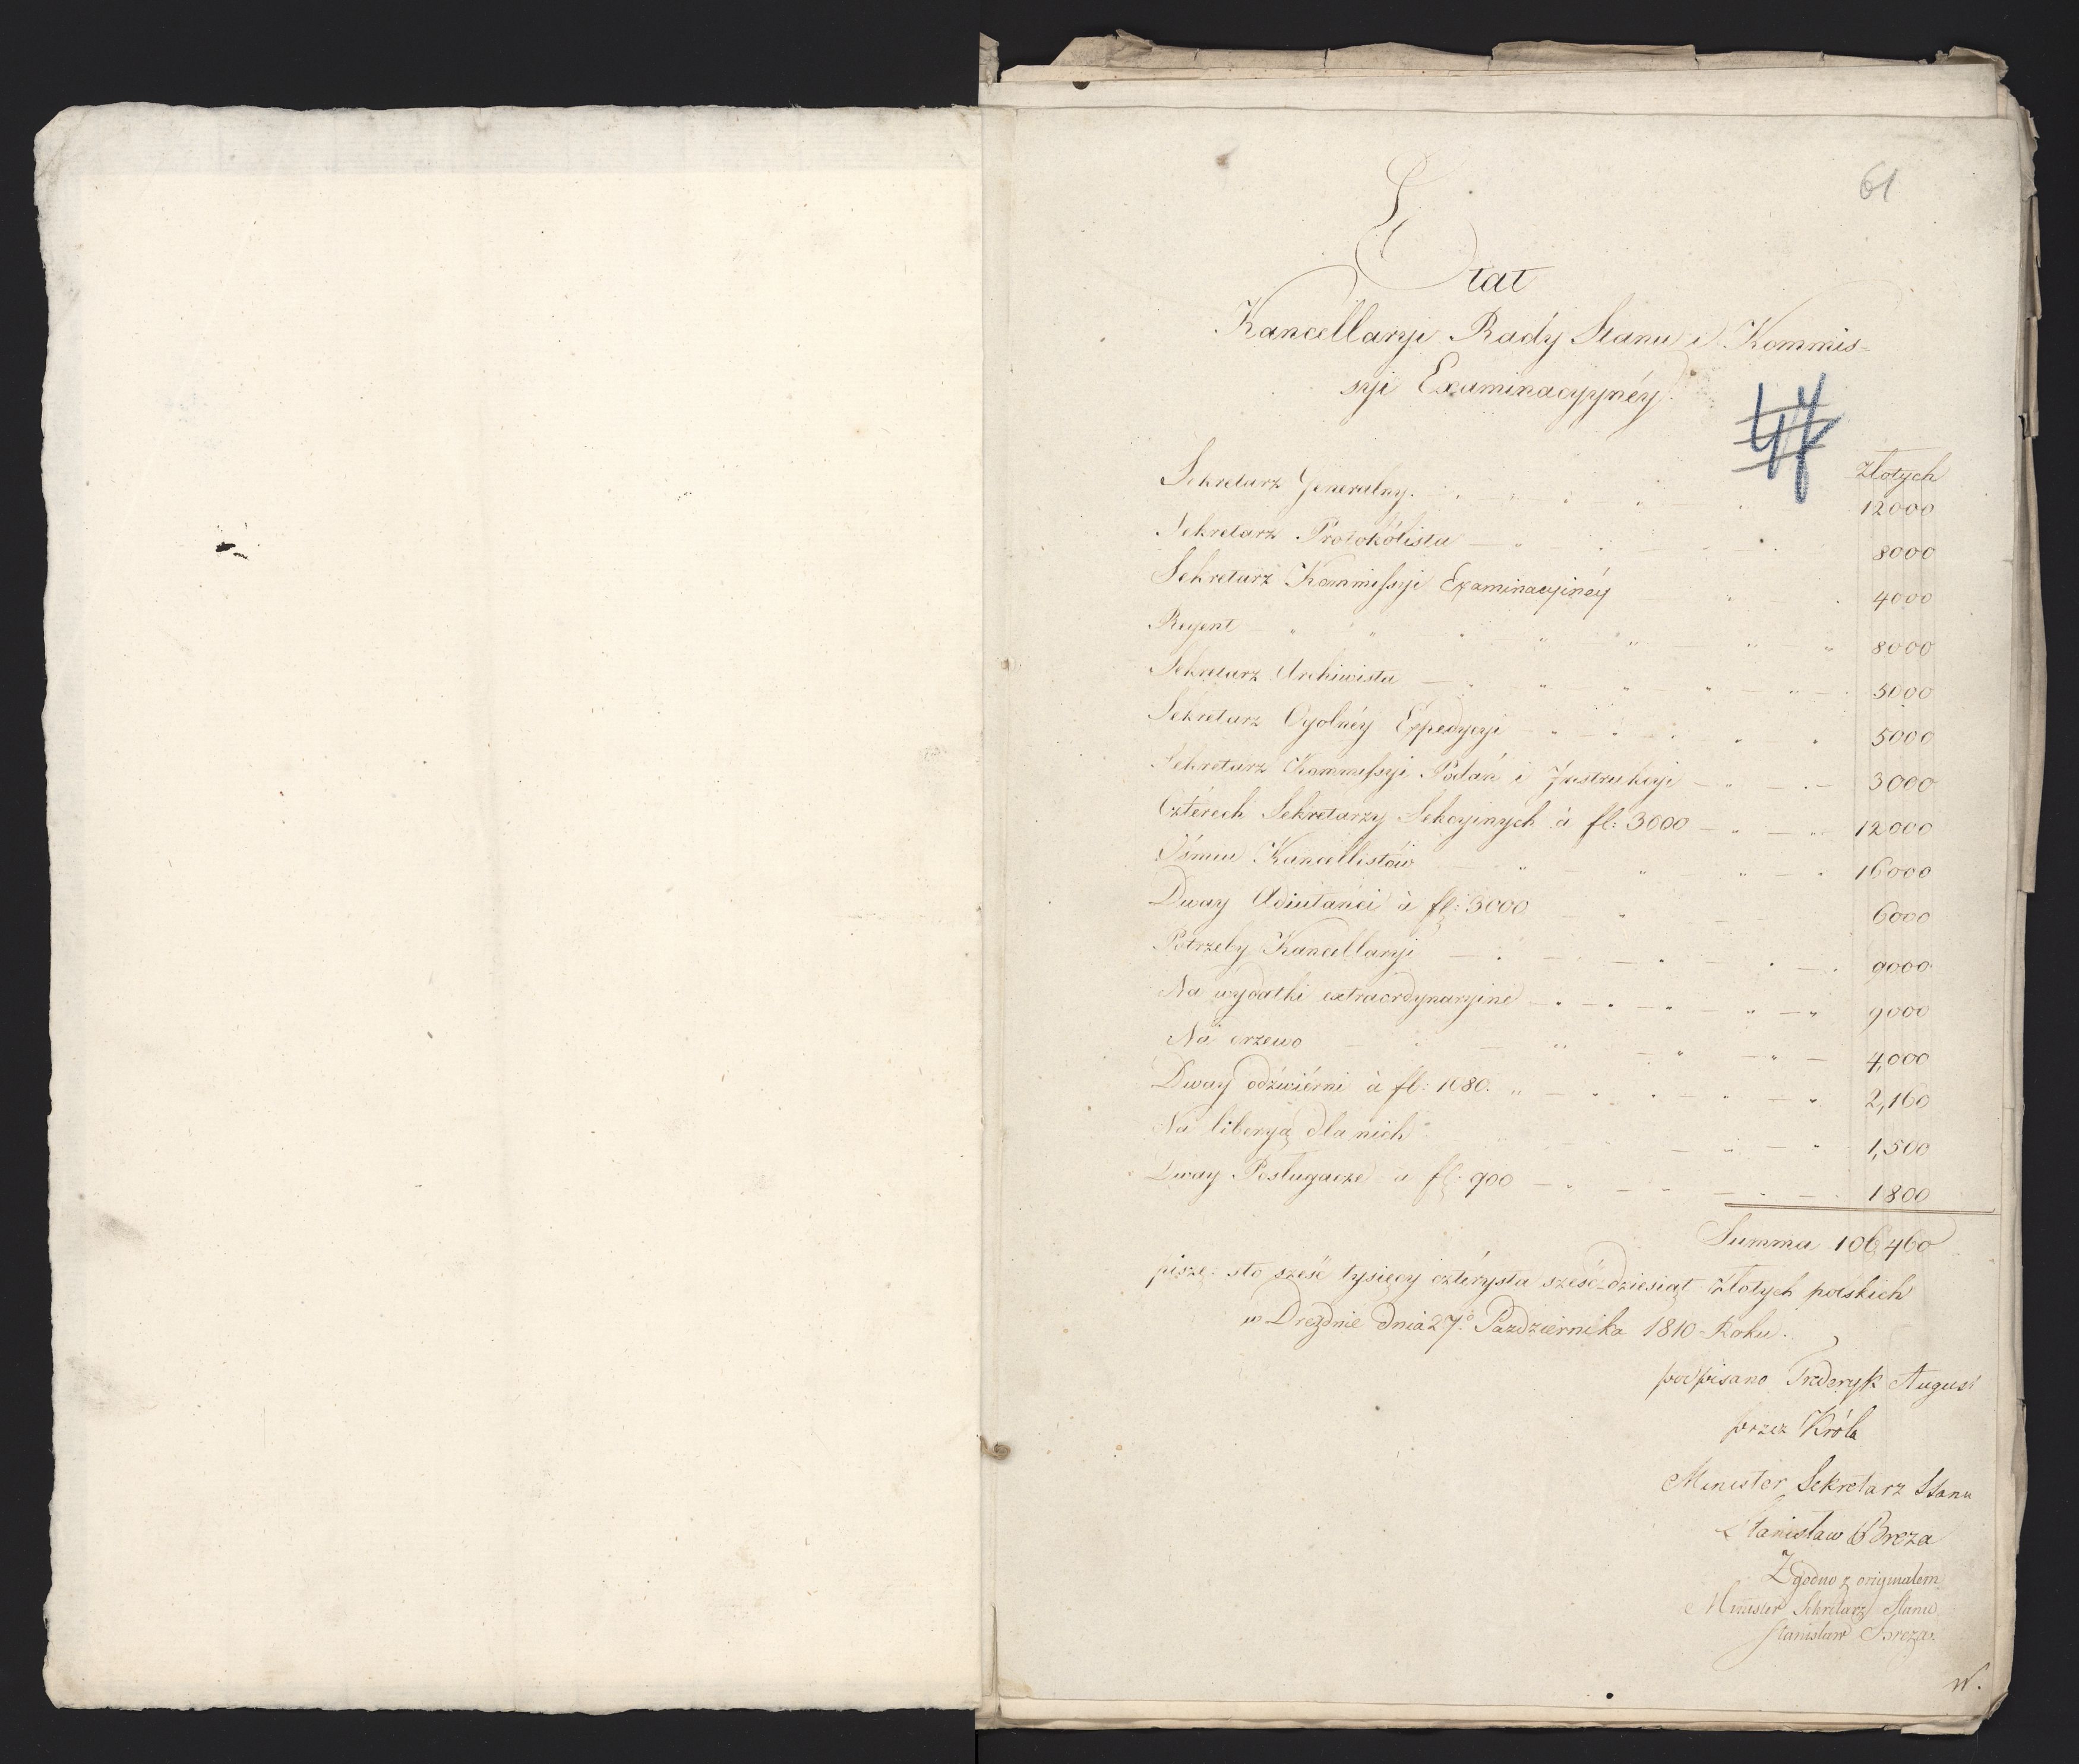 61
Etat
Kancellaryi Rady Stanu i Kommis-
syi Examinacyynéy.
47
Złotych
Sekretarz Generalny. 12000
Sekretarz Protokólista 8000
Sekretarz Kommissyi Examinacyinéy 4000
Regent 8000
Sekretarz Archiwista 5000
Sekretarz Ogolnéy Expedycyi 5000
Sekretarz Kommissyi Podań i Instrukcyi 3000
Cztérech Sekretarzy Sekcyinych à fl: 3000 12000
Ósmiu Kancellistów 16000
Dway Adiutanci à fl: 3000 6000
Potrzeby Kancellaryi 9000
Na wydatki extraordynaryine 9000
Na drzewo 4,000
Dway odźwiérni à fl: 1080. 2,160
Na liberyą dla nich 1,500
Dway Posługacze a fl: 900 1800
Summa 106,460
piszę: sto sześć tysięcy cztérysta sześć-dziesiąt złotych polskich
w Dreznie dnia 27.° Pazdziernika 1810 Roku.
podpisano Frederyk August
przez Króla
Minister Sekretarz Stanu
Stanisław Breza
Zgodno z originałem
Minister Sekretarz Stanu
Stanisław Breza.
W.